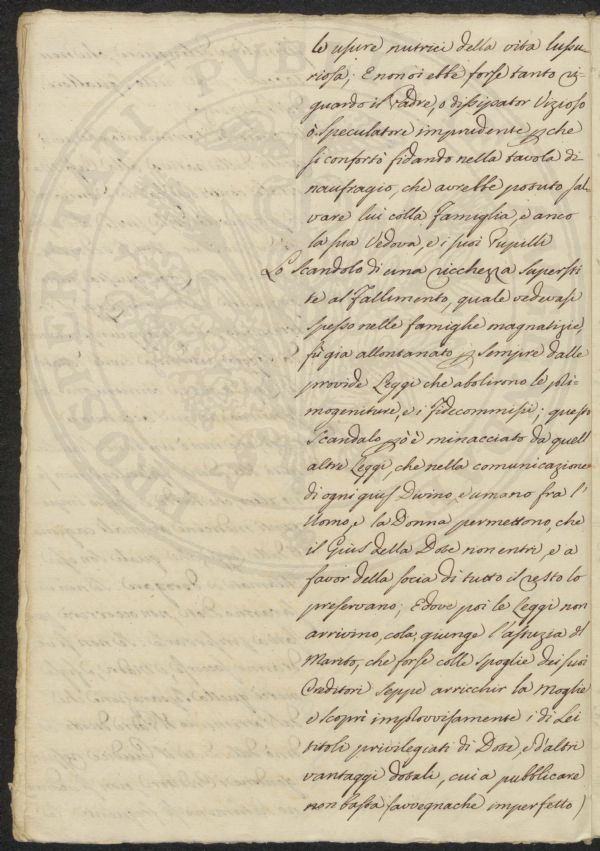 le usure nutrici della vita lussu
riosa; E non si ebbe forse tanto ri-
guardo il Padre, o dissipator Vizioso
o speculatore imprudente, che
si confortò fidando nella tavola di
naufragio, che avrebbe potuto sal
vare lui colla Famiglia, e anco
la sua Vedova, e i suoi Pupilli
Lo Scandolo di una ricchezza superst
te al Fallimento, quale vedevasi
spesso nelle famiglie magnatizie,
fù già allontanato sempre dalle
provide Leggi che abolirono le pri-
mogeniture, e i fidecommisi; questo
Scandalo è minacciato da quell
altre Leggi, che nella comunicazione
di ogni gius Divino, e umano fra l'
Uomo, e la Donna permettono, che
il Gius della Dote non entri, e a
favor della socia di tutto il resto lo
preservano; E dove poi le Leggi non
arrivino, colà giunge l'astuzia del
Marito, che forse colle spoglie dei suoi
Creditori seppe arricchir la Moglie
e scoprì improvvisamente i di Lei
titoli privilegiati di Dote, e d'altri
vantaggi dotali, cui a pubblicare
non basta (avvegnache imperfetto)
PROSPERITATI PVB